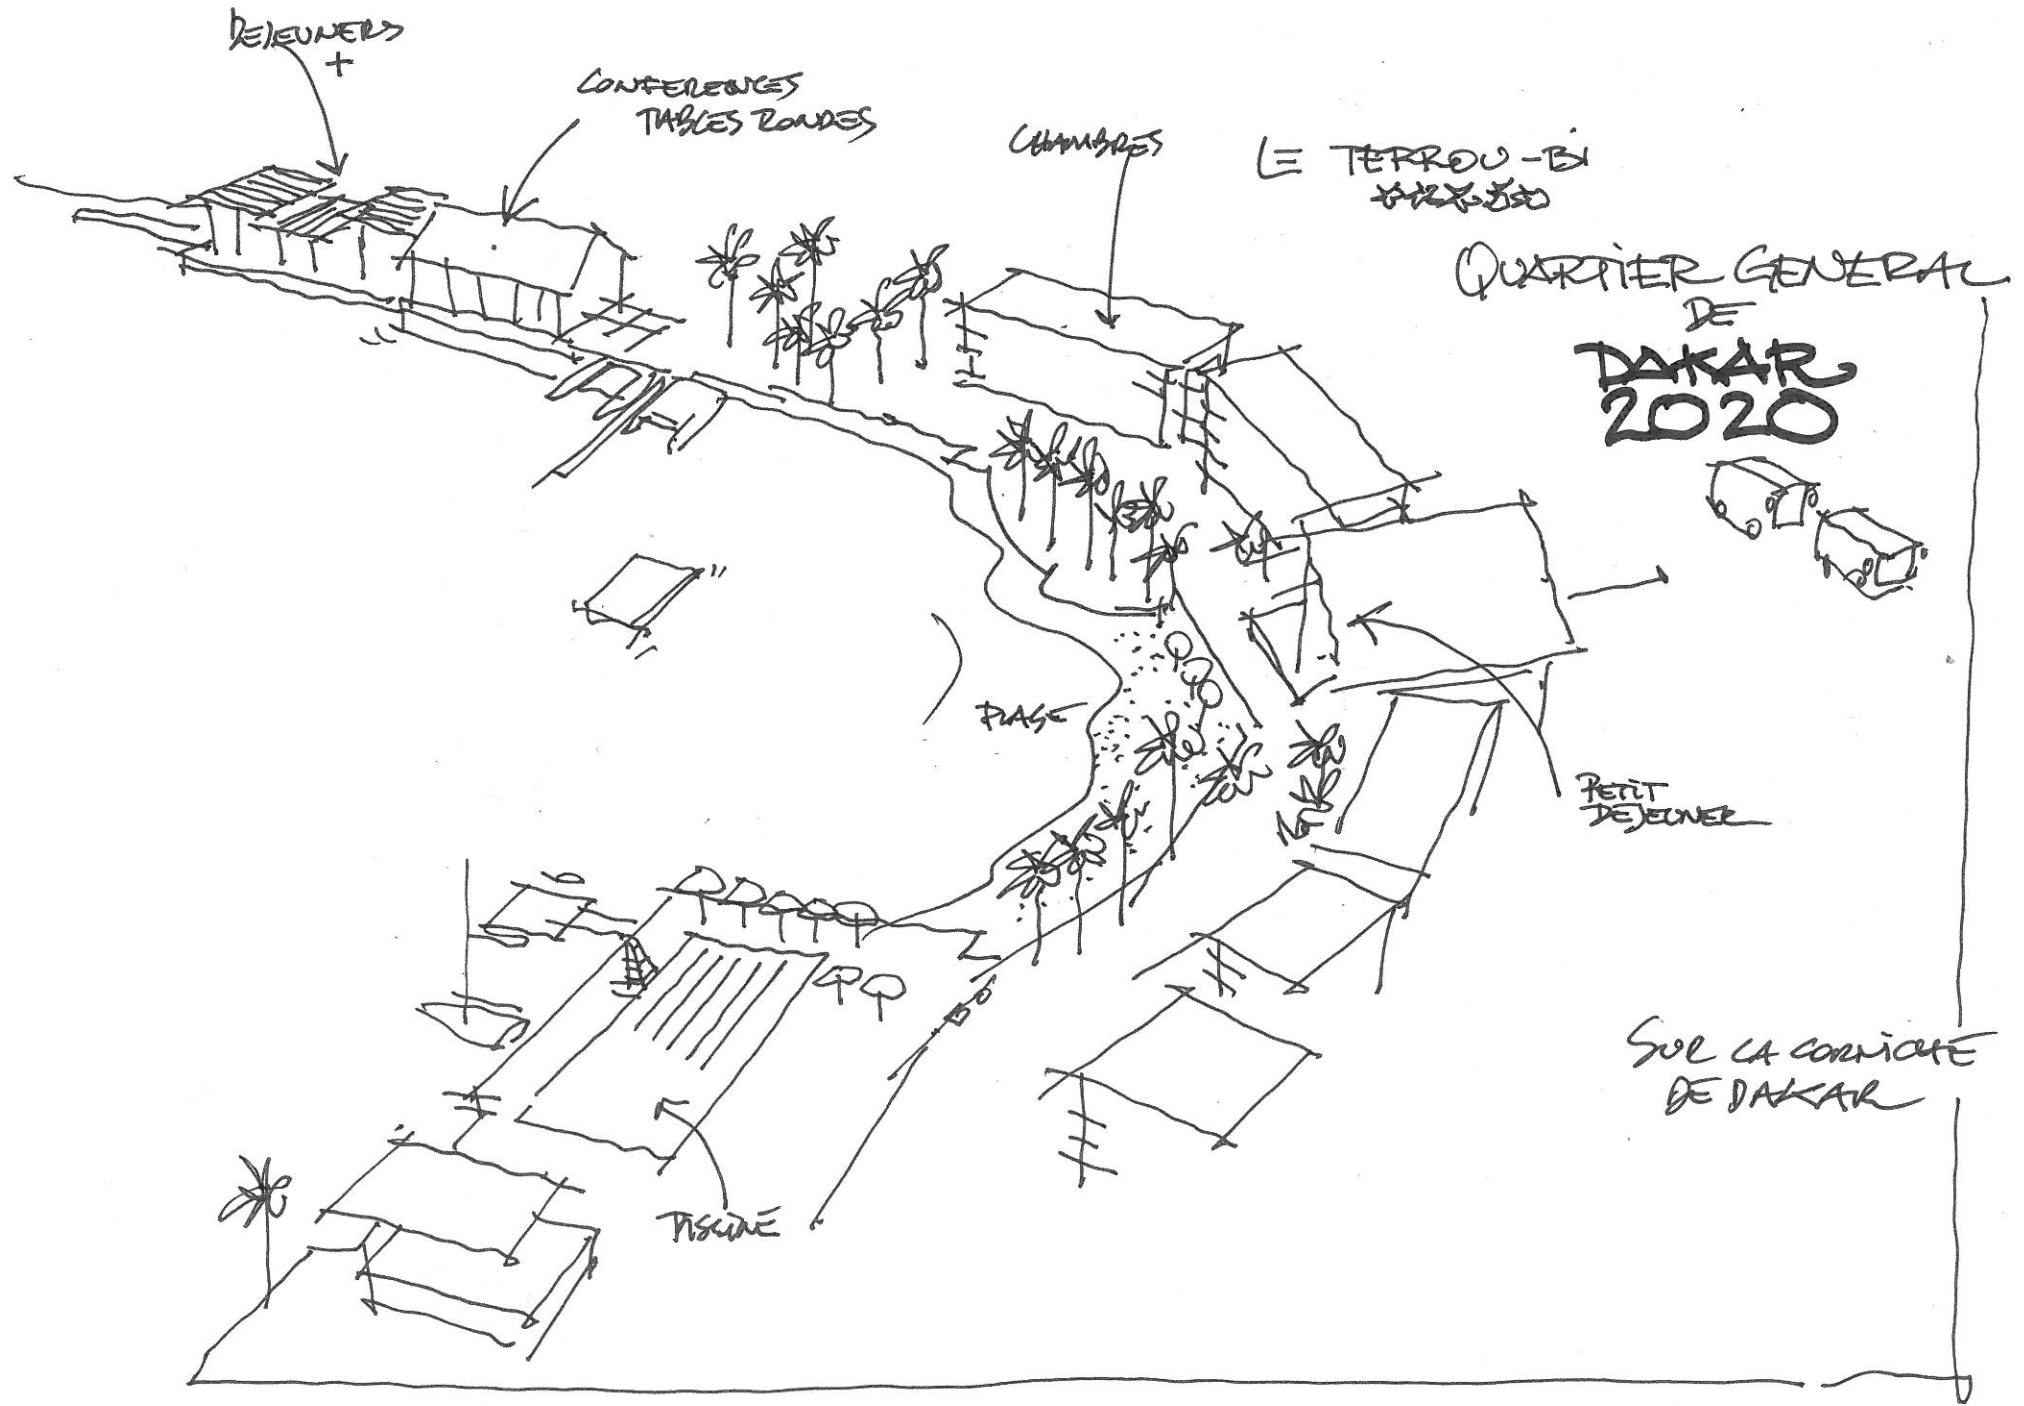 DEJEUNERS
+
CONFERENCES
TABLES RONDES
CHAMBRES
LE TERROU-Bi
QUARTIER GENERAL
DE
DAKAR
2020
PLAGE
PETIT
DEJEUNER
SUR LA CORNICHE
DE DAKAR
PISCINE